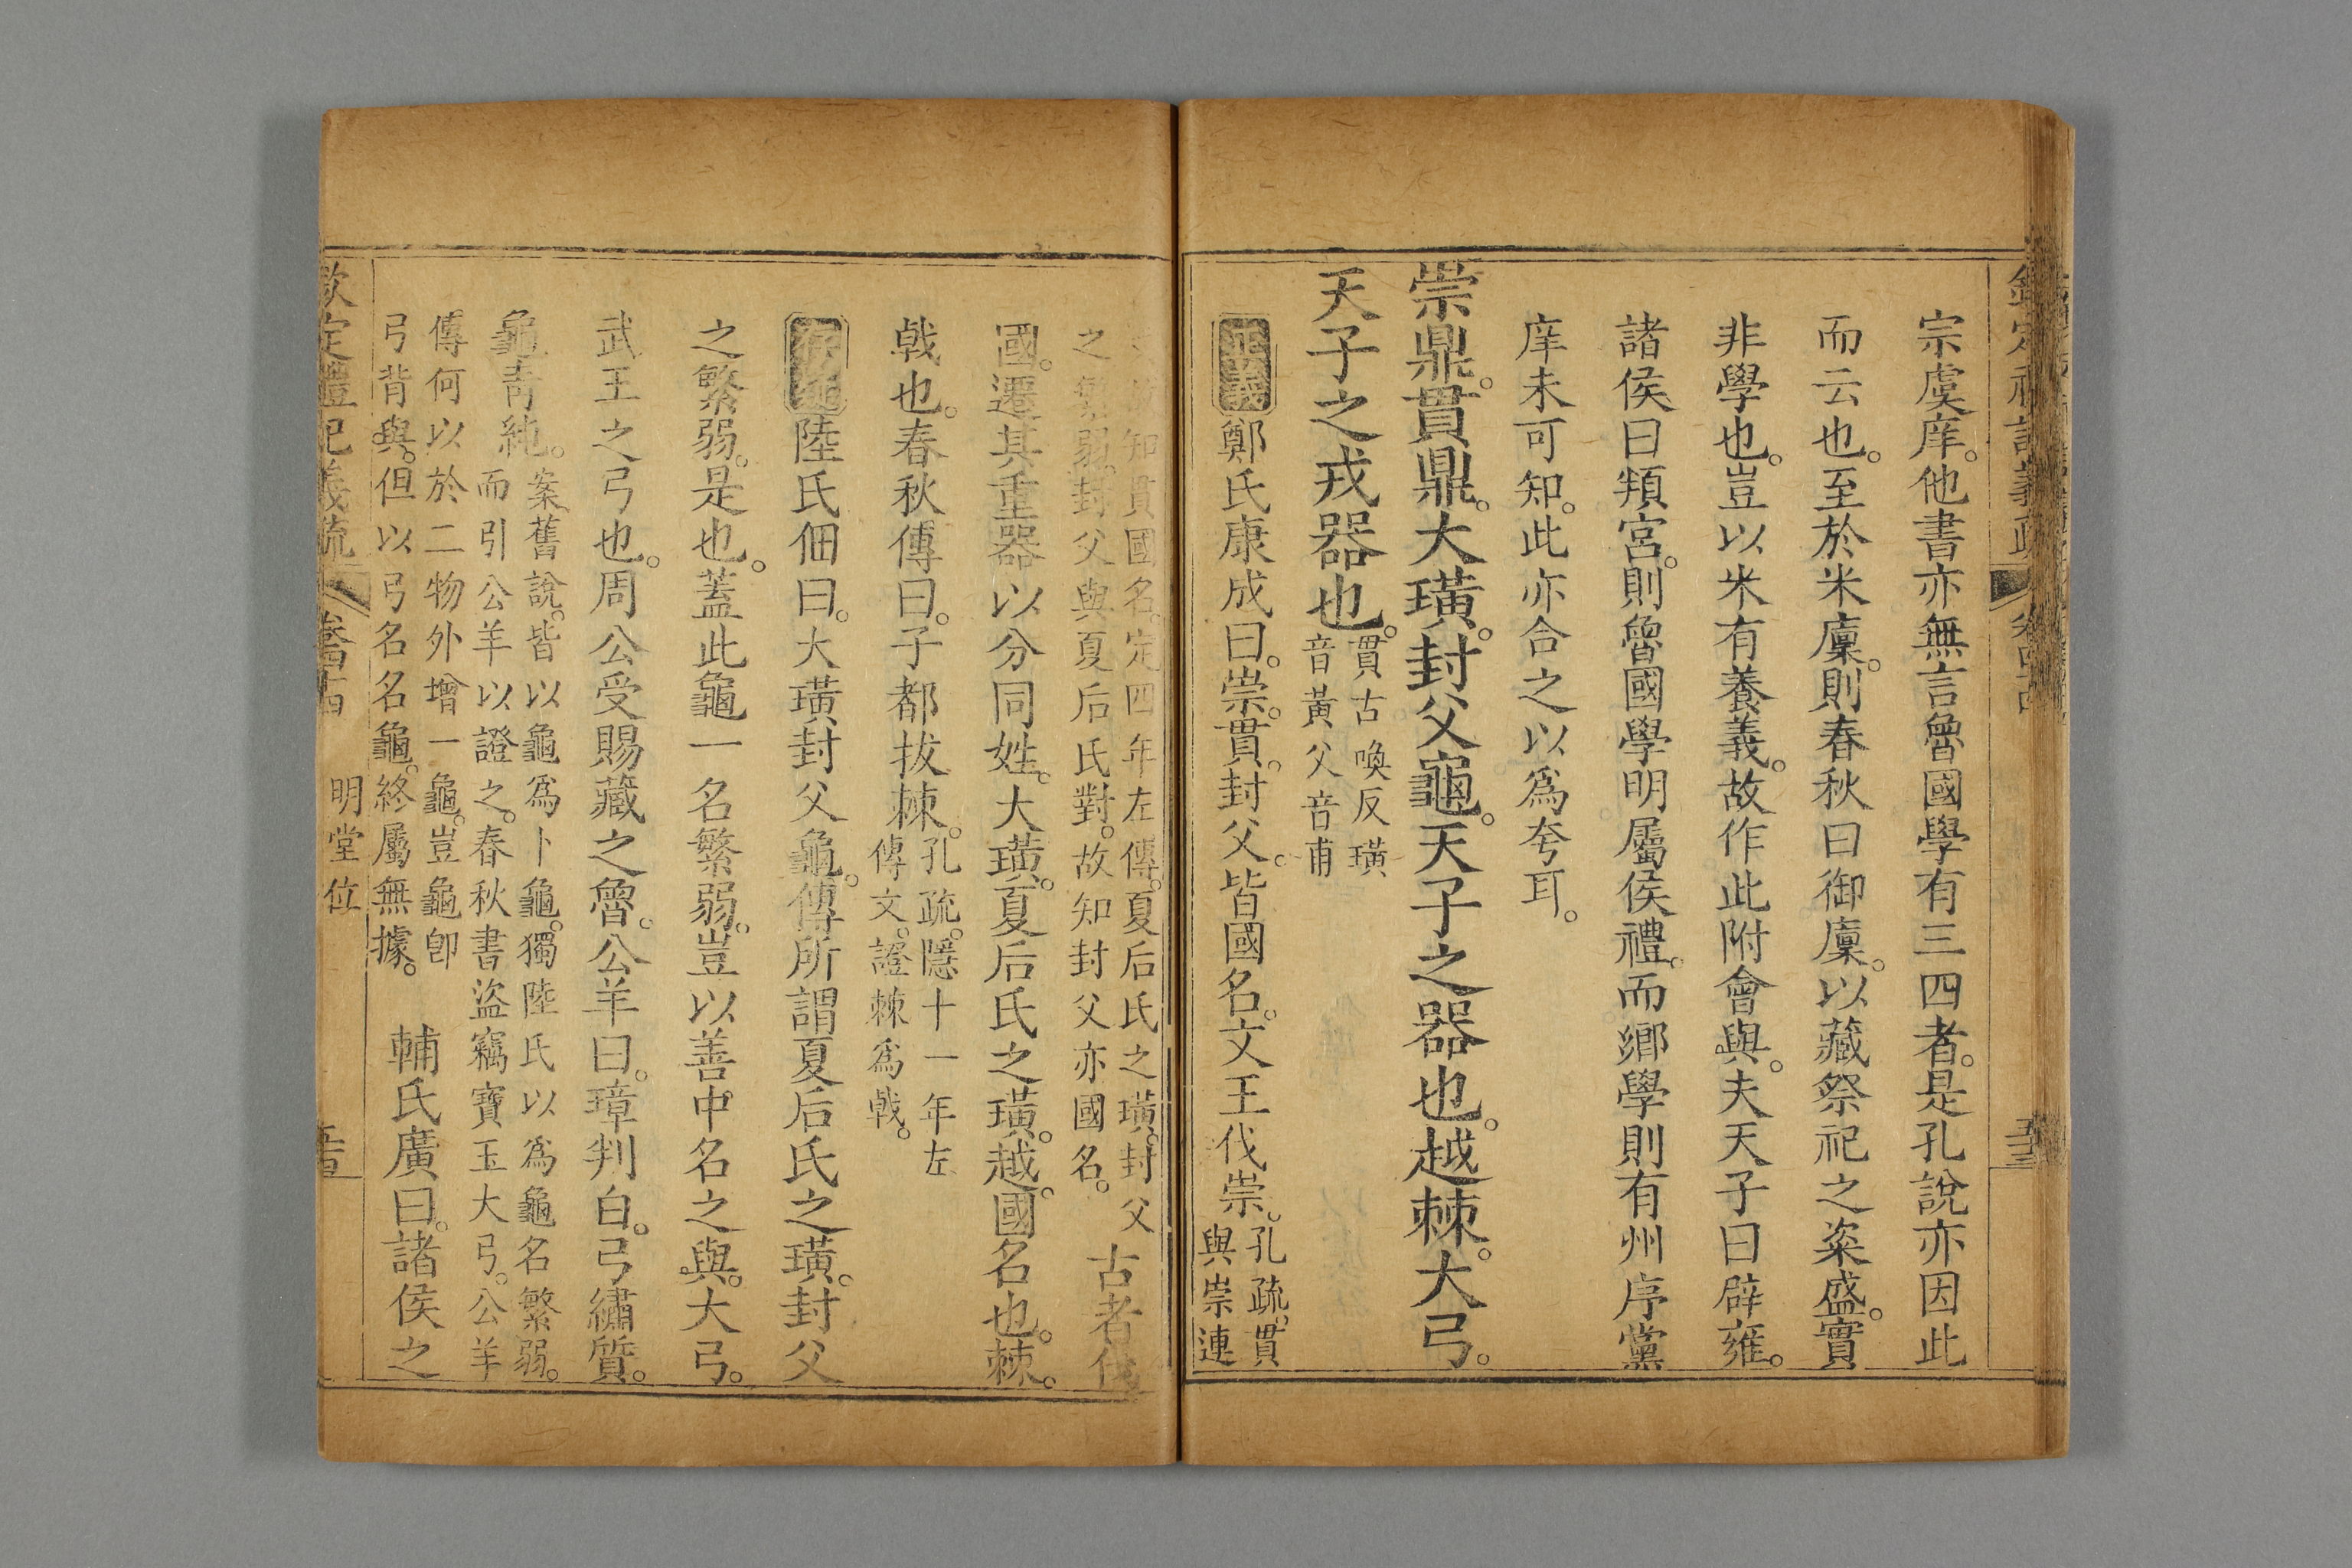 宗虞庠。他書亦無言魯國學有三四者。是孔說亦因此
而云也。至於米廩。則春秋曰御廩。以藏祭祀之粢盛。實
非學也。豈以米有養義。故作此附會與。夫天子曰辟雍。
諸侯曰頖宮。則魯國學明屬侯禮。而鄉學則有州序黨
庠未可知。此亦合之以爲夸耳。
崇鼎。貫鼎。大璜。封父龜。天子之器也。越棘。大弓。
天子之戎器也。
貫古喚反璜
音黃父音甫
正義鄭氏康成曰。崇。貫。封父。皆國名。文王伐崇。
孔疏。貫
與崇連
知貫國名。定四年左傳。夏后氏之璜。封父
之繁弱。封父與夏后氏對。故知封父亦國名。
古者伐
國。遷其重器以分同姓。大璜。夏后氏之璜。越。國名也。棘。
戟也。春秋傳曰。子都拔棘。
孔疏。隱十一年左
傳文。證棘爲戟。
陸氏佃曰。大璜封父龜。傳所謂夏后氏之璜。封父
之繁弱。是也。蓋此龜一名繁弱。豈以善中名之與。大弓。
武王之弓也。周公受賜藏之魯。公羊曰。璋判白。弓繡質。
龜青純。
案舊說。皆以龜爲卜龜。獨陸氏以爲龜名繁弱。
而引公羊以證之。春秋書盜竊寶玉大弓。公羊
傳何以於二物外增一龜。豈龜卽
弓背與。但以弓名名龜。終屬無據。
輔氏廣曰。諸侯之
欽定禮記義疏
卷四十四
明堂位